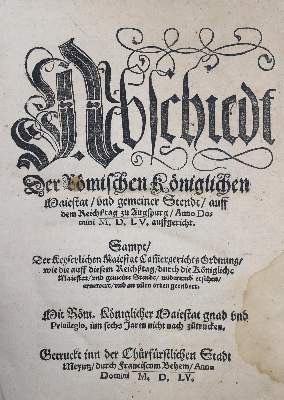 Abschiedt
Der Römischen Königlichen
Maiestat / vnd gemeiner Stendt / auff
dem Reichßtag zu Augspurg / Anno Do-
mini M. D. LV. auffgericht.
Sampt /
Der Keyserlichen Maiestat Cammergerichts Ordnung /
wie die auff diesem Reichßtag / durch die Königliche
Maiestat / vnd gemeine Stende / widerumb ersehen /
ernewert / vnd an vilen orten geendert.
Mit Röm. Königlicher Maiestat gnad vnd
Priuilegio, inn sechs Jaren nicht nach zůtrucken.
Getruckt inn der Chürfürstlichen Stadt
Meyntz / durch Franciscum Behem / Anno
Domini M. D. LV.